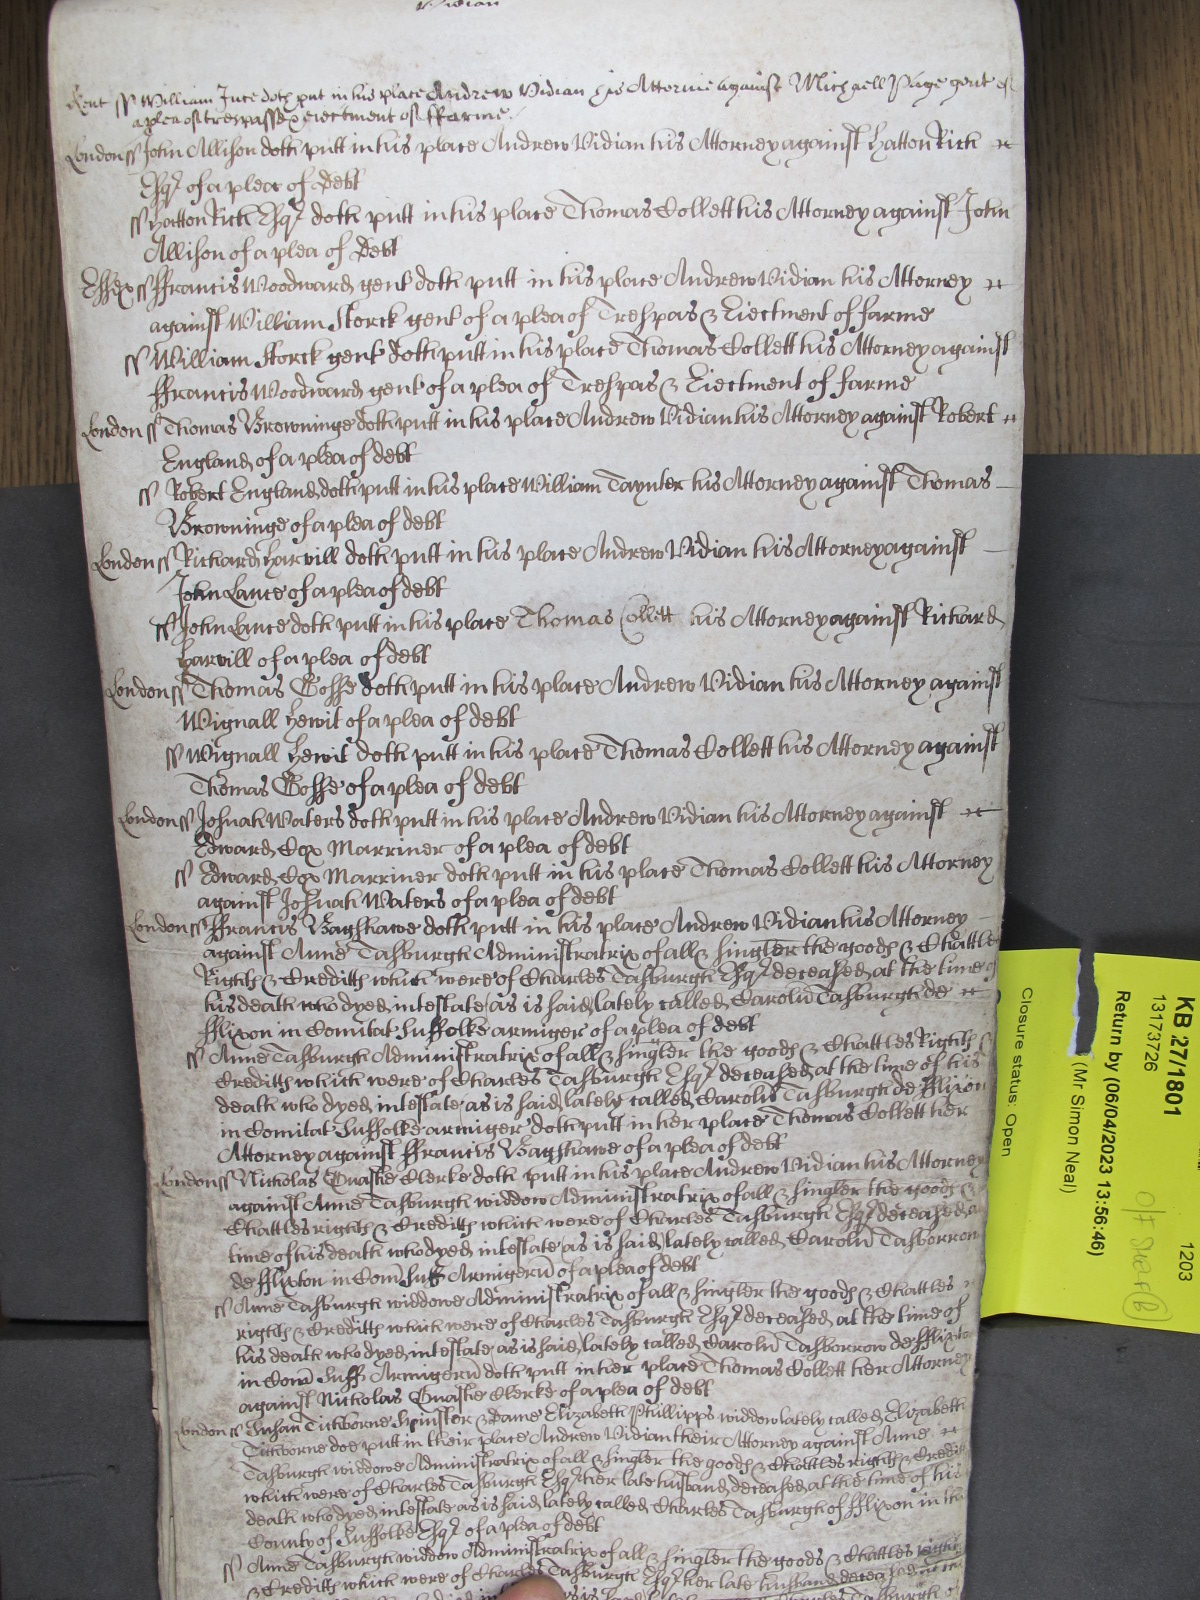 Vidian
Kent ss William Juce doth put in his place Andrew Vidian his Attornie against Michaell Page gent of
a plea of trespasse & eiectment of ffarme.
London ss John Allison doth putt in his place Andrew Vidian his Attorney against Hatton Rich
Esqr of a plea of Debt
ss Hatton Rich Esqr doth putt in his place Thomas Collett his Attorney against John
Allison of a plea of Debt
Essex ss ffrancis Woodward gent doth putt in his place Andrew Vidian his Attorney
against William Storck gent of a plea of Trespas & Eiectment of farme
ss William Storck gent doth putt in his place Thomas Collett his Attorney against
ffrancis Woodward gent of a plea of Trespas & Eiectment of farme
London ss Thomas Browninge doth putt in his place Andrew Vidian his Attorney against Robert
England of a plea of debt
ss Robert England doth putt in his place William Taynter his Attorney against Thomas
Browninge of a plea of debt
London ss Richard Harvill doth putt in his place Andrew Vidian his Attorney against
John Lance of a plea of debt
ss John Lance doth putt in his place Thomas Collett his Attorney against Richard
Harvill of a plea of debt
London ss Thomas Gosse doth putt in his place Andrew Vidian his Attorney against
Wignall Hewit of a plea of debt
ss Wignall Hewit doth putt in his place Thomas Collett his Attorney against
Thomas Gosse of a plea of debt
London ss Joshuah Waters doth putt in his place Andrew Vidian his Attorney against
Edward Cox Marriner of a plea of debt
ss Edward Cox Marriner doth putt in his place Thomas Collett his Attorney
against Joshuah Waters of a plea of debt
London ss ffrancis Bagshawe doth putt in his place Andrew Vidian his Attorney
against Anne Tasburgh Administratrix of all & singler the goods & Chattles
Rights & Creditts which were of Charles Tasburgh Esqr deceased at the time of
his death who dyed intestate as is said lately called Caroli Tasburgh de
fflixon in Comitat Suffolke armiger of a plea of debt
ss Anne Tasburgh Administratrix of all & singler the goods & Chattles Rights &
Creditts which were of Charles Tasburgh Esqr deceased at the time of his
death who dyed intestate as is said lately called Caroli Tasburgh de fflixon
in Comitat Suffolke armiger doth putt in her place Thomas Collett her
Attorney against ffrancis Bagshawe of a plea of debt
London ss Nicholas Clerke doth putt in his place Andrew Vidian his Attorney
against Anne Tasburgh widdow Administratrix of all & singler the goods &
Chattles rights & Creditts which were of Charles Tasburgh Esqr deceased
time of his death who dyed intestate as is said lately called Caroli Tasborrow
de fflixton in Com Suff Armigeru of a plea of debt
ss Anne Tasburgh widdowe Administratrix of all & singler the goods & Chattles
rights & Creditts which were of Charles Tasburgh Esqr deceased at the time of
his death who dyed intestate as is said lately called Caroli Tasborrow de fflixton
in Com Suff Armigeru doth putt in her place Thomas Collett her Attorney
against Nicholas Clerke of a plea of debt
London ss Susan Tichborne Spinster & Dame Elizabeth Phillipps widdow lately called Elizabeth
Tichborne doe putt in their place Andrew Vidian their Attorney against Anne
Tasburgh widdowe Administratrix of all & singler the goods & Chattles rights & Creditts
which were of Charles Tasburgh Esqr her late husband deceased at the time of his
death who dyed intestate as is said lately called Charles Tasburgh of fflixon in the
County of Suffolke Esqr of a plea of debt
ss Anne Tasburgh widdow Administratrix of all & singler the goods & Chattles rights
& Creditts which were of Charles Tasburgh Esqr her late husband deceased
KB 27/1801
13173726
1203
Return by (06/04/2023 13:56:46)
(Mr Simon Neal)
Closure status: Open